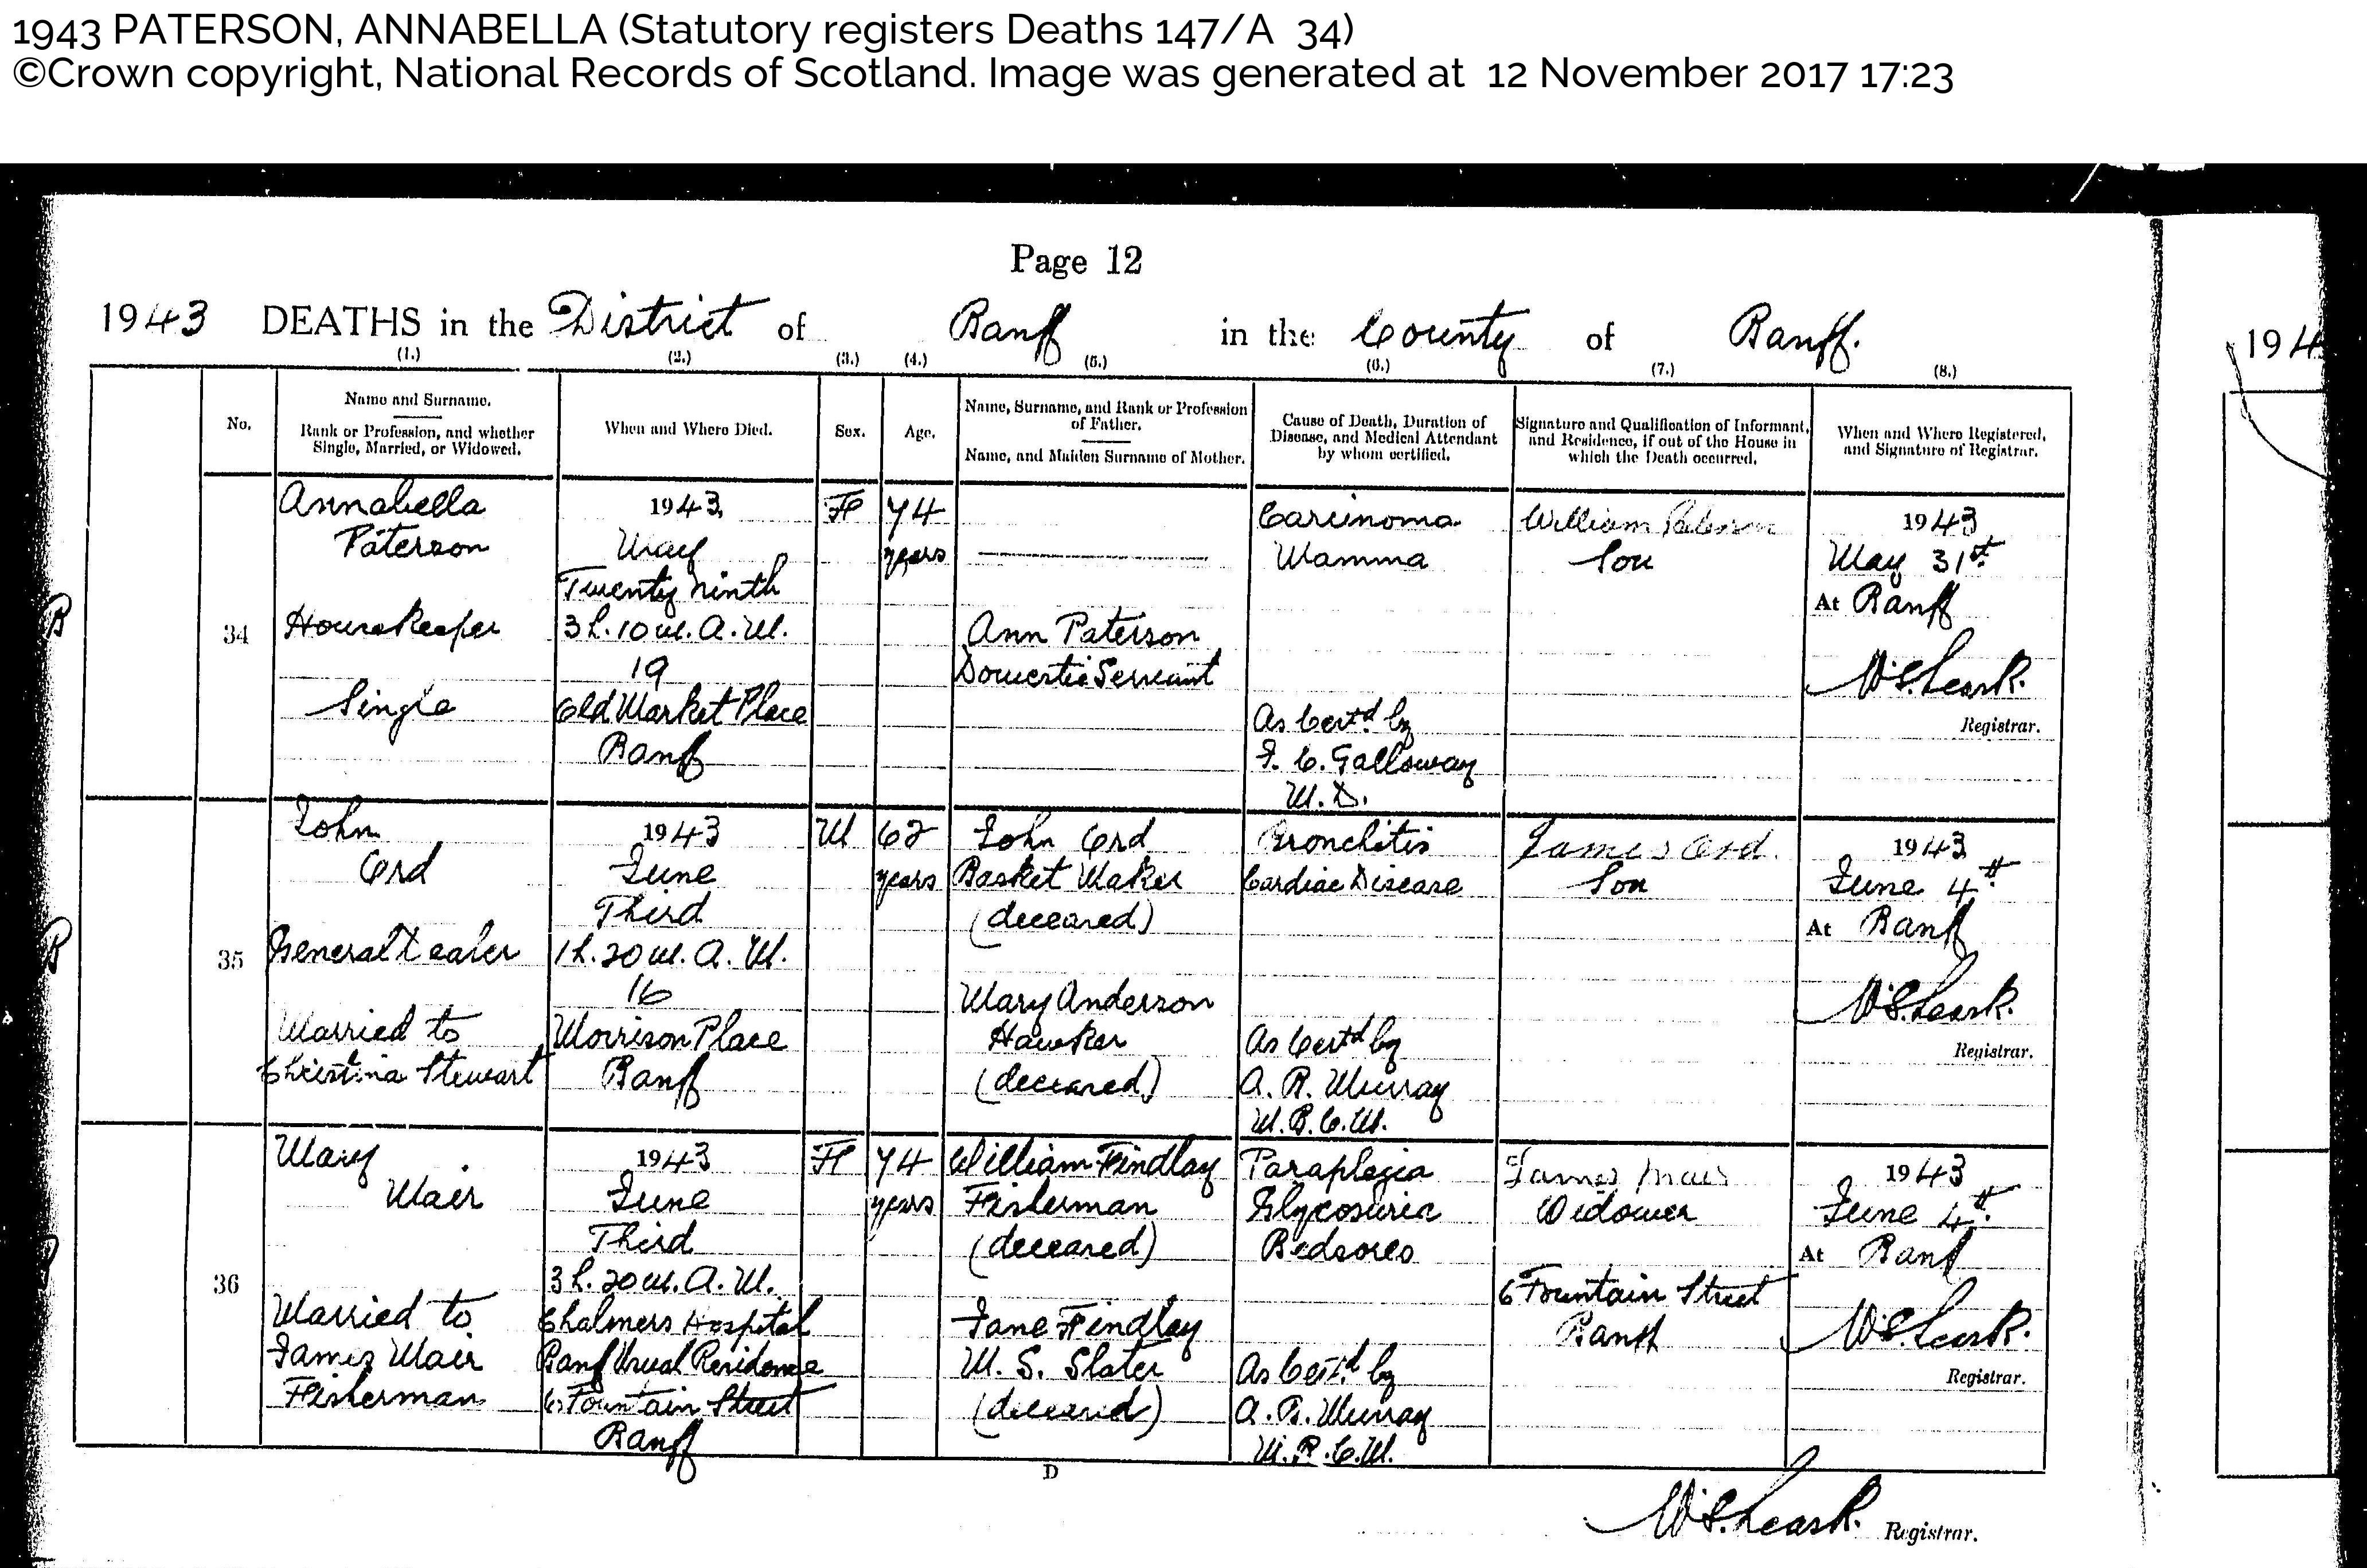 1943 PATERSON, ANNABELLA (Statutory registers Deaths 147/A 34)
©Crown copyright, National Records of Scotland. Image was generated at 12 November 2017 17:23
Page 12
1943 DEATHS in the District of Banff in the County of Banff.
(1.) (2.) (3.) (4.) (5.) (6.) (7.) (8.)
No.
Name and Surname.
Rank or Profession, and whether
Single, Married, or Widowed.
When and Where Died.
Sex.
Age.
Name, Surname, and Rank or Profession
of Father.
Name, and Maiden Surname of Mother.
Cause of Death, Duration of
Disease, and Medical Attendant
by whom certified.
Signature and Qualification of Informant,
and Residence, if out of the House in
which the Death occurred.
When and Where Registered,
and Signature of Registrar.
34
Annabella
Paterson
Housekeeper
Single
1943
May
Twenty ninth
3h. 10m. A.M.
19
Old Market Place
Banff
F
74
years
Ann Paterson
Domestic Servant
Carcinoma
Mamma
As Certd by
F. C. Galloway
M.D.
William Paterson
Son
1943
May 31st
At Banff
W. S. Leask.
Registrar.
35
John
Ord
General Dealer
Married to
Christina Stewart
1943
June
Third
1h. 20m. A.M.
16
Morrison Place
Banff
M
62
years
John Ord
Basket Maker
(deceased)
Mary Anderson
Hawker
(deceased)
Bronchitis
Cardiac Disease
As Certd by
A. R. Murray
M.B.C.M.
James Ord.
Son
1943
June 4th
At Banff
W. S. Leask.
Registrar.
36
Mary
Mair
Married to
James Mair
Fisherman
1943
June
Third
3h. 20m. A.M.
Chalmers Hospital
Banff Usual Residence
6 Fountain Street
Banff
F
74
years
William Findlay
Fisherman
(deceased)
Jane Findlay
M. S. Slater
(deceased)
Paraplegia
Glycosuria
Bedsores
As Certd by
A. R. Murray
M.B.C.M.
James Mair
Widower
6 Fountain Street
Banff
1943
June 4th
At Banff
W. S. Leask.
Registrar.
D
W. S. Leask. Registrar.
194